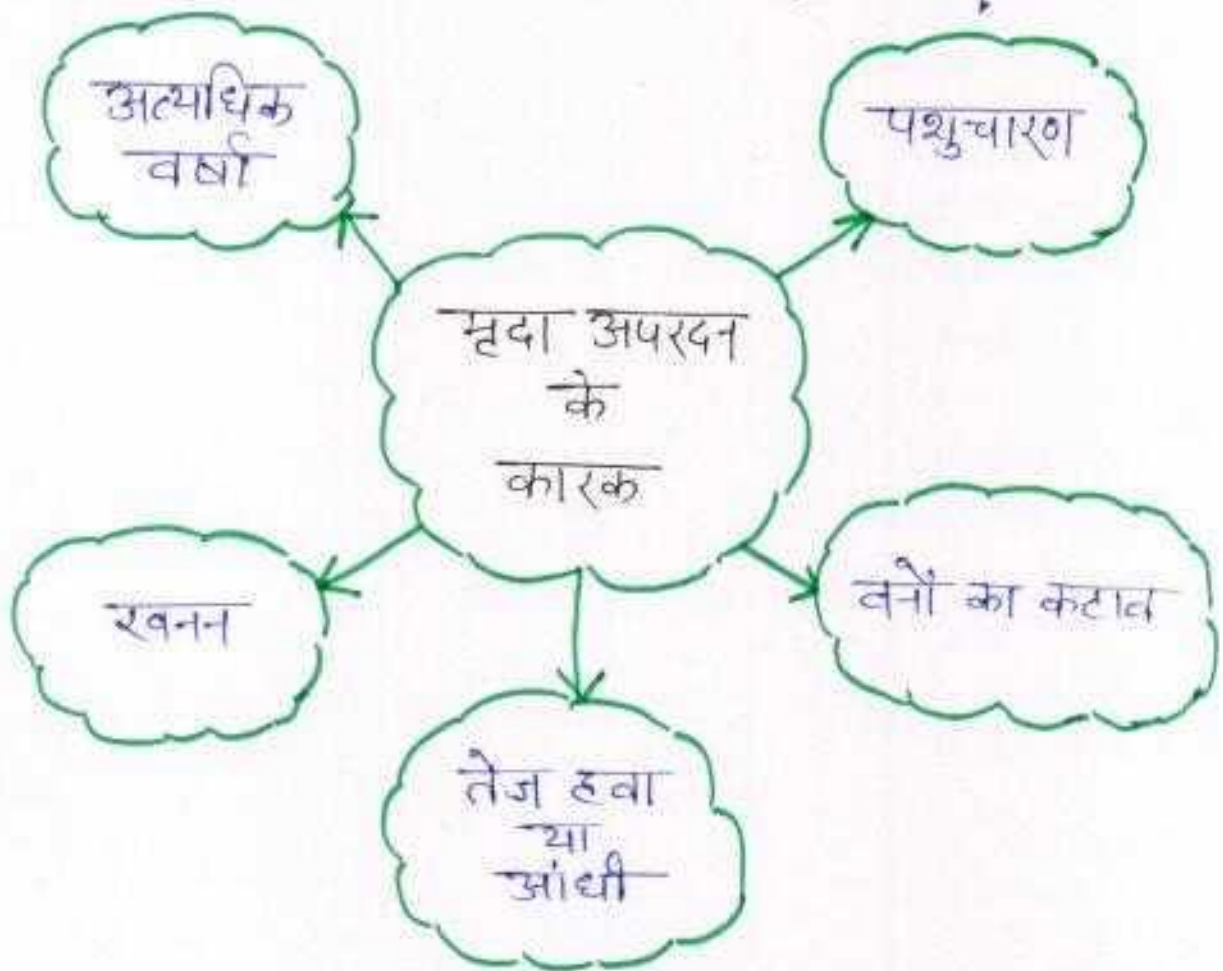 अत्यधिक
वर्षा
पशुचारण
मृदा अपरदन
के
कारक
खनन
वनों का कटाव
तेज हवा
या
आंधी